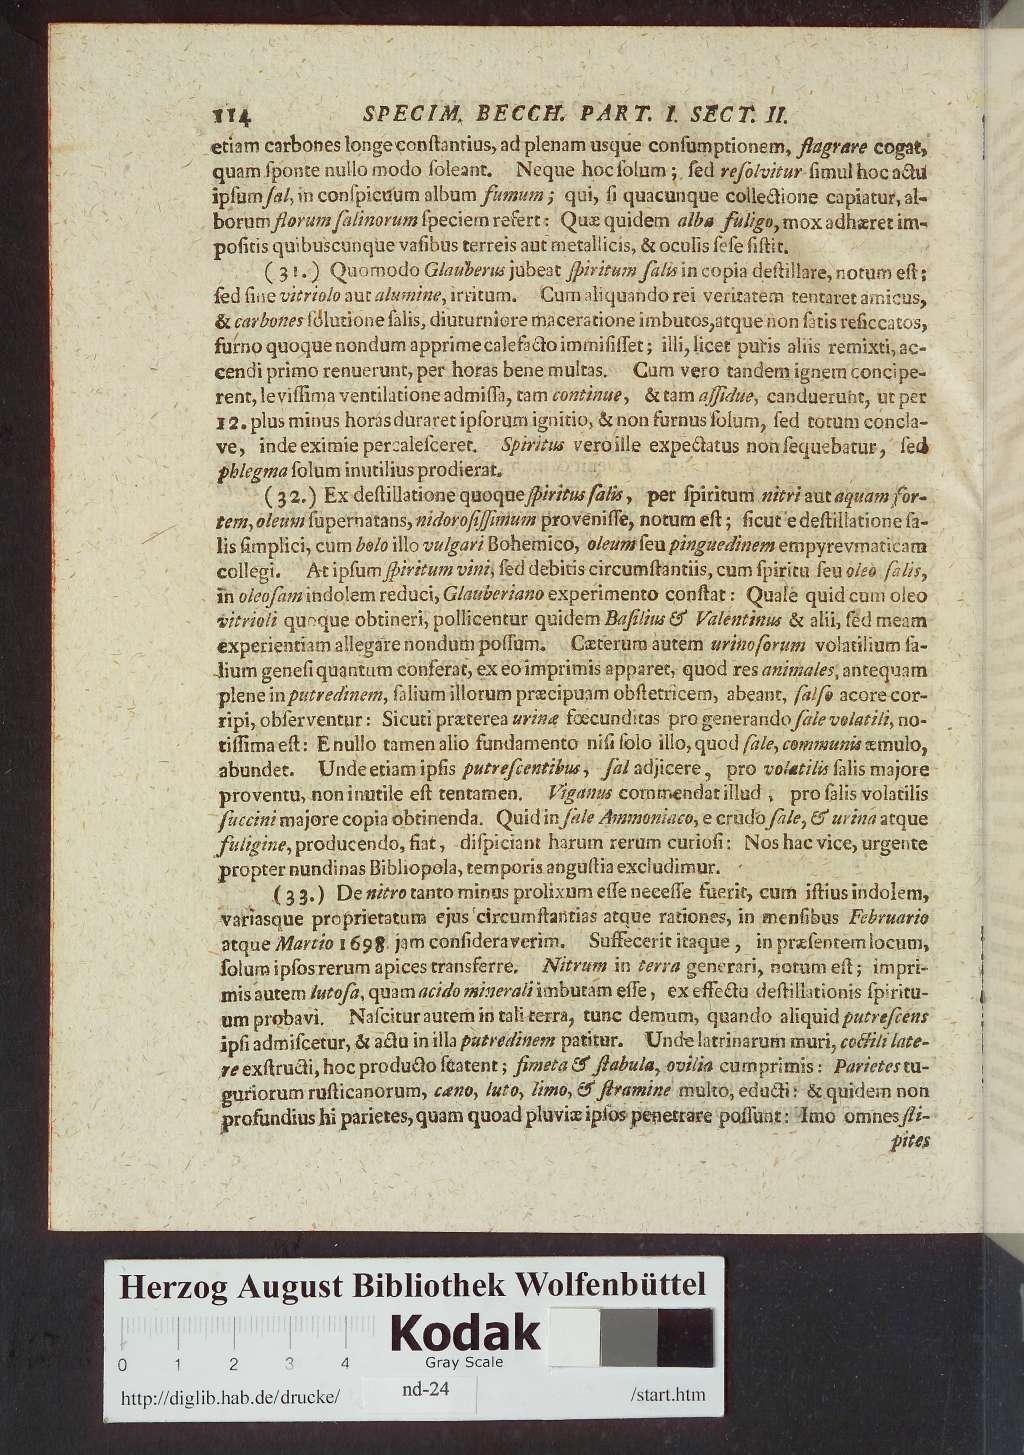 114 SPECIM. BECCH. PART. I. SECT. II.
etiam carbones longe conſtantius, ad plenam usque conſumptionem, flagrare cogat,
quam ſponte nullo modo ſoleant. Neque hoc ſolum; ſed reſolvitur ſimul hoc actu
ipſum ſal, in conſpicuum album fumum; qui, ſi quacunque collectione capiatur, al-
borum florum ſalinorum ſpeciem refert: Quæ quidem alba fuligo, mox adhæret im-
poſitis quibuscunque vaſibus terreis aut metallicis, & oculis ſeſe ſiſtit.
(31.) Quomodo Glauberus jubeat ſpiritum ſalis in copia deſtillare, notum eſt;
ſed ſine vitriolo aut alumine, irritum. Cum aliquando rei veritatem tentaret amicus,
& carbones ſolutione ſalis, diuturniore maceratione imbutos, atque non ſatis reſiccatos,
furno quoque nondum apprime calefacto immiſiſſet; illi, licet puris aliis remixti, ac-
cendi primo renuerunt, per horas bene multas. Cum vero tandem ignem concipe-
rent, leviſſima ventilatione admiſſa, tam continue, & tam aſſidue, canduerunt, ut per
12. plus minus horas duraret ipſorum ignitio, & non furnus ſolum, ſed totum concla-
ve, inde eximie percaleſceret. Spiritus vero ille expectatus non ſequebatur, ſed
phlegma ſolum inutilius prodierat.
(32.) Ex deſtillatione quoque ſpiritus ſalis, per ſpiritum nitri aut aquam for-
tem, oleum ſupernatans, nidoroſiſſimum proveniſſe, notum eſt; ſicut e deſtillatione ſa-
lis ſimplici, cum bolo illo vulgari Bohemico, oleum ſeu pinguedinem empyrevmaticam
collegi. At ipſum ſpiritum vini, ſed debitis circumſtantiis, cum ſpiritu ſeu oleo ſalis,
in oleoſam indolem reduci, Glauberiano experimento conſtat: Quale quid cum oleo
vitrioli quoque obtineri, pollicentur quidem Baſilius & Valentinus & alii, ſed meam
experientiam allegare nondum poſſum. Cæterum autem urinoſorum volatilium ſa-
lium geneſi quantum conferat, ex eo imprimis apparet, quod res animales, antequam
plene in putredinem, ſalium illorum præcipuam obſtetricem, abeant, ſalſo acore cor-
ripi, obſerventur: Sicuti præterea urinæ fœcunditas pro generando ſale volatili, no-
tiſſima eſt: E nullo tamen alio fundamento niſi ſolo illo, quod ſale, communis æmulo,
abundet. Unde etiam ipſis putreſcentibus, ſal adjicere, pro volatilis ſalis majore
proventu, non inutile eſt tentamen. Viganus commendat illud, pro ſalis volatilis
ſuccini majore copia obtinenda. Quid in ſale Ammoniaco, e crudo ſale, & urina atque
fuligine, producendo, fiat, diſpiciant harum rerum curioſi: Nos hac vice, urgente
propter nundinas Bibliopola, temporis anguſtia excludimur.
(33.) De nitro tanto minus prolixum eſſe neceſſe fuerit, cum iſtius indolem,
variasque proprietatum ejus circumſtantias atque rationes, in menſibus Februario
atque Martio 1698. jam conſideraverim. Suffecerit itaque, in præſentem locum,
ſolum ipſos rerum apices transferre. Nitrum in terra generari, notum eſt; impri-
mis autem lutoſa, quam acido minerali imbutam eſſe, ex effectu deſtillationis ſpiritu-
um probavi. Naſcitur autem in tali terra, tunc demum, quando aliquid putreſcens
ipſi admiſcetur, & actu in illa putredinem patitur. Unde latrinarum muri, coctili late-
re exſtructi, hoc producto ſcatent; fimeta & ſtabula, ovilia cumprimis: Parietes tu-
guriorum ruſticanorum, cæno, luto, limo, & ſtramine multo, educti: & quidem non
profundius hi parietes, quam quoad pluviæ ipſos penetrare poſſunt: Imo omnes ſti-
pites
Herzog August Bibliothek Wolfenbüttel
Kodak
Gray Scale
0 1 2 3 4
http://diglib.hab.de/drucke/ nd-24 /start.htm